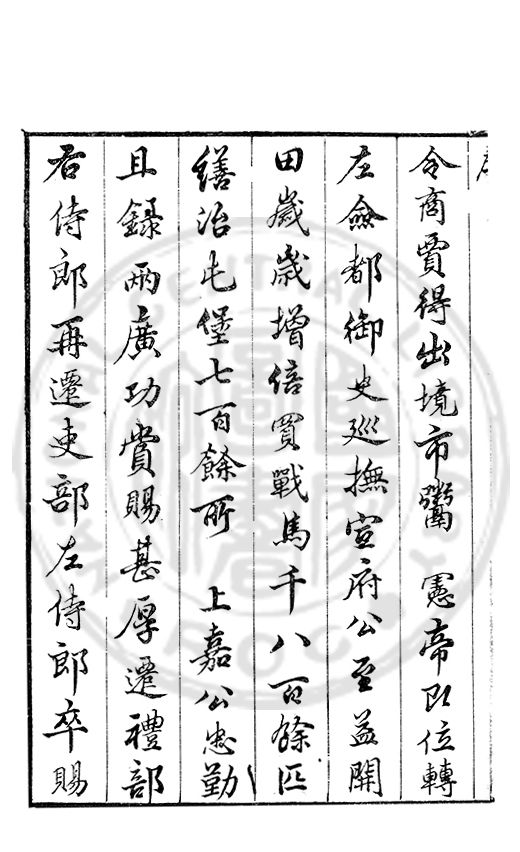 令商賈得出境市鬻 憲帝即位轉
左僉都御史巡撫宣府公至益開
田歲歲增倍買戰馬千八百餘匹
繕治屯堡七百餘所 上嘉公忠勤
且錄兩廣功賞賜甚厚遷禮部
右侍郎再遷吏部左侍郎卒賜